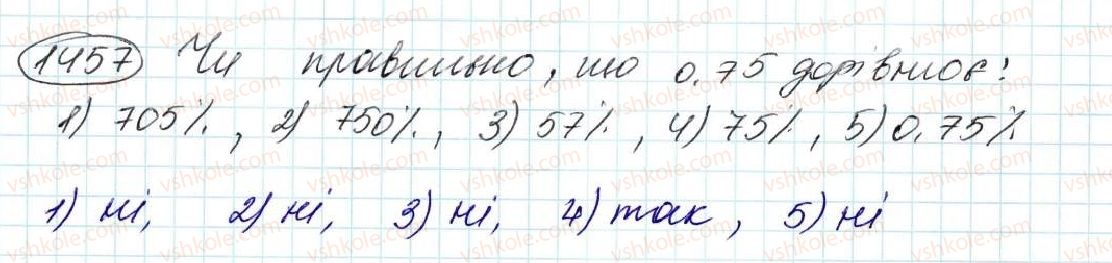 1457 Чи правильно, що 0.75 дорівнює:
1) 705%, 2) 750%, 3) 57%, 4) 75%, 5) 0.75%
1) ні, 2) ні, 3) ні, 4) так, 5) ні